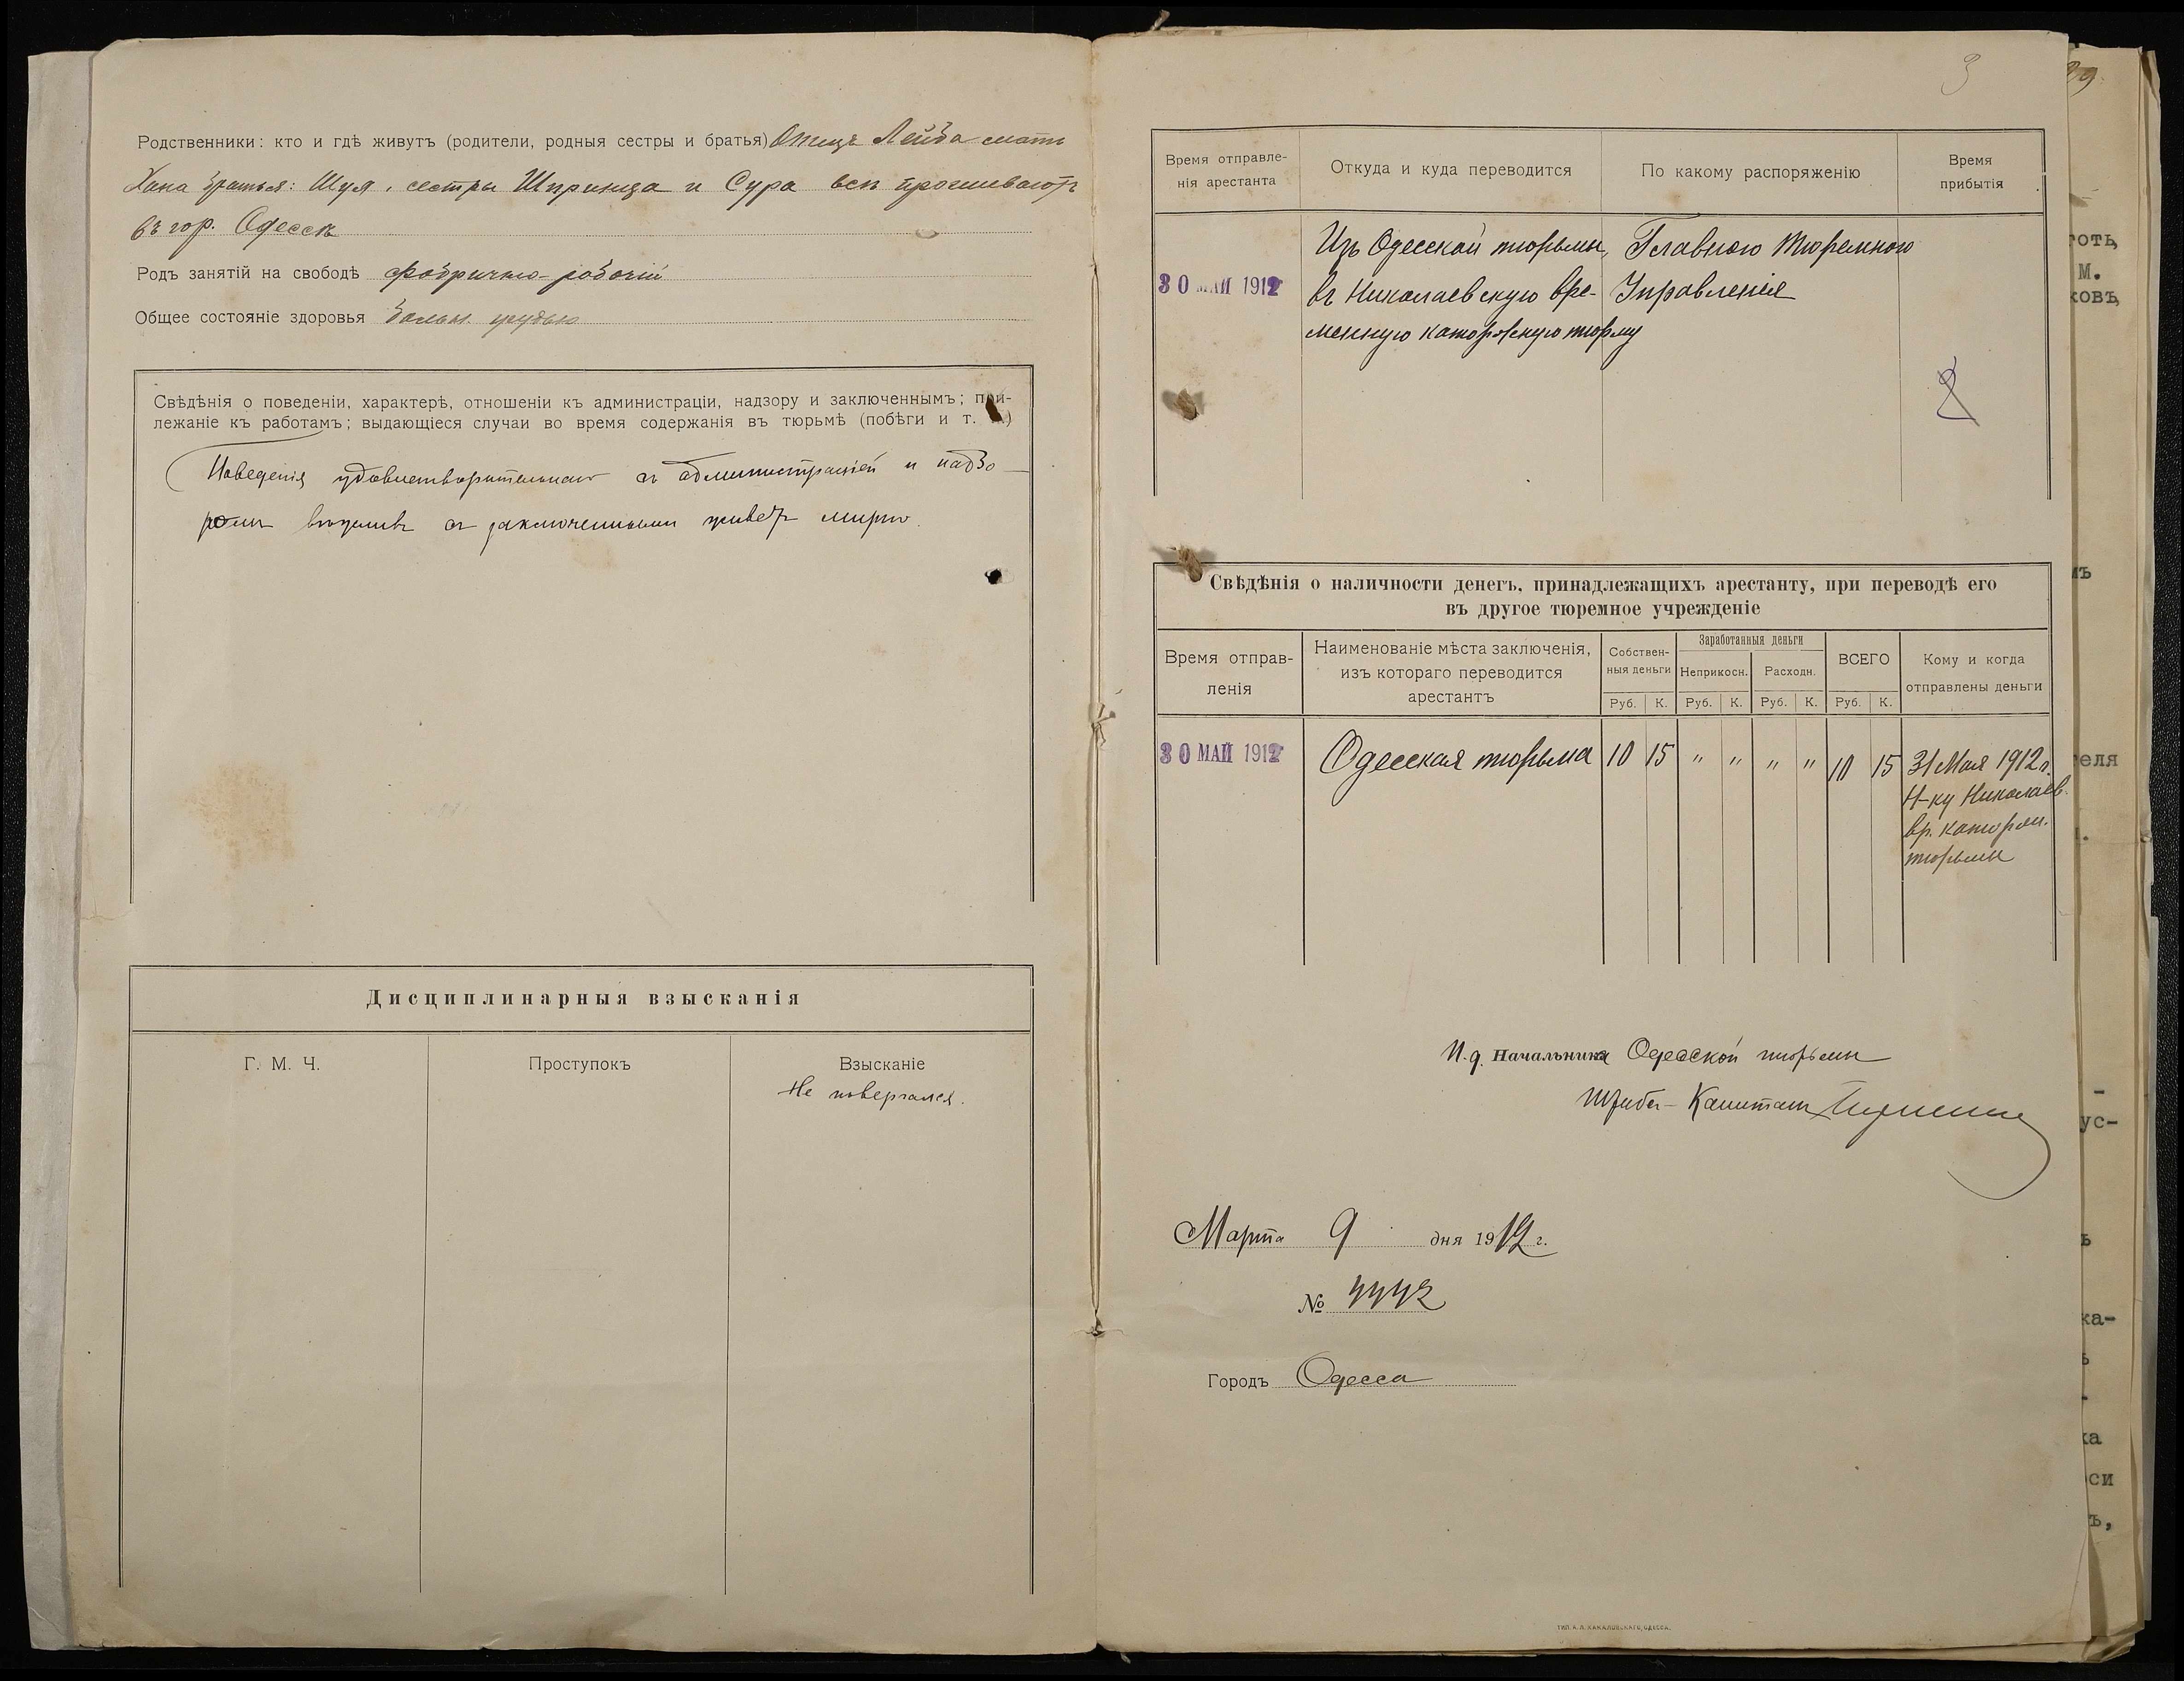 Родственники: кто и гдѣ живутъ (родители, родныя сестры и братья) Отецъ Лейба мать
Хана братья: Шуя, сестры Шпринца и Сура всѣ проживаютъ
въ гор. Одессѣ
Родъ занятій на свободѣ фабрично-рабочій
Общее состояніе здоровья Больн. грудью
Свѣдѣнія о поведеніи, характерѣ, отношеніи къ администраціи, надзору и заключеннымъ; при-
лежаніе къ работамъ; выдающіеся случаи во время содержанія въ тюрьмѣ (побѣги и т. )
Поведенія удовлетворительнаго съ администраціей и надзо-
ромъ вѣжливъ съ заключенными живетъ мирно.
Дисциплинарныя взысканія
Г. М. Ч. Проступокъ Взысканіе
Не повергался.
3
Время отправле-
нія арестанта
Откуда и куда переводится
По какому распоряженію
Время
прибытія
30 МАЙ 1912
Изъ Одесской тюрьмы,
въ Николаевскую вре-
менную каторжную тюрму
Главного Тюремного
Управленія
Свѣдѣнія о наличности денегъ, принадлежащихъ арестанту, при переводѣ его
въ другое тюремное учрежденіе
Время отправ-
ленія
Наименованіе мѣста заключенія,
изъ котораго переводится
арестантъ
Собствен-
ныя деньги
Заработанныя деньги
Неприкосн. Расходн.
ВСЕГО
Кому и когда
отправлены деньги
Руб. К. Руб. К. Руб. К. Руб. К.
30 МАЙ 1912 Одесская тюрьма 10 15 " " " " 10 15 31 Мая 1912 г.
Н-ку Николаев.
вр. каторжн.
тюрьмы
И.д. Начальника Одесской тюрьмы
Штабсъ-Капитанъ
Марта 9 дня 1912 г.
№ 4442
Городъ Одесса
ТИП. А. Л. ХАКАЛОВСКАГО, ОДЕССА.